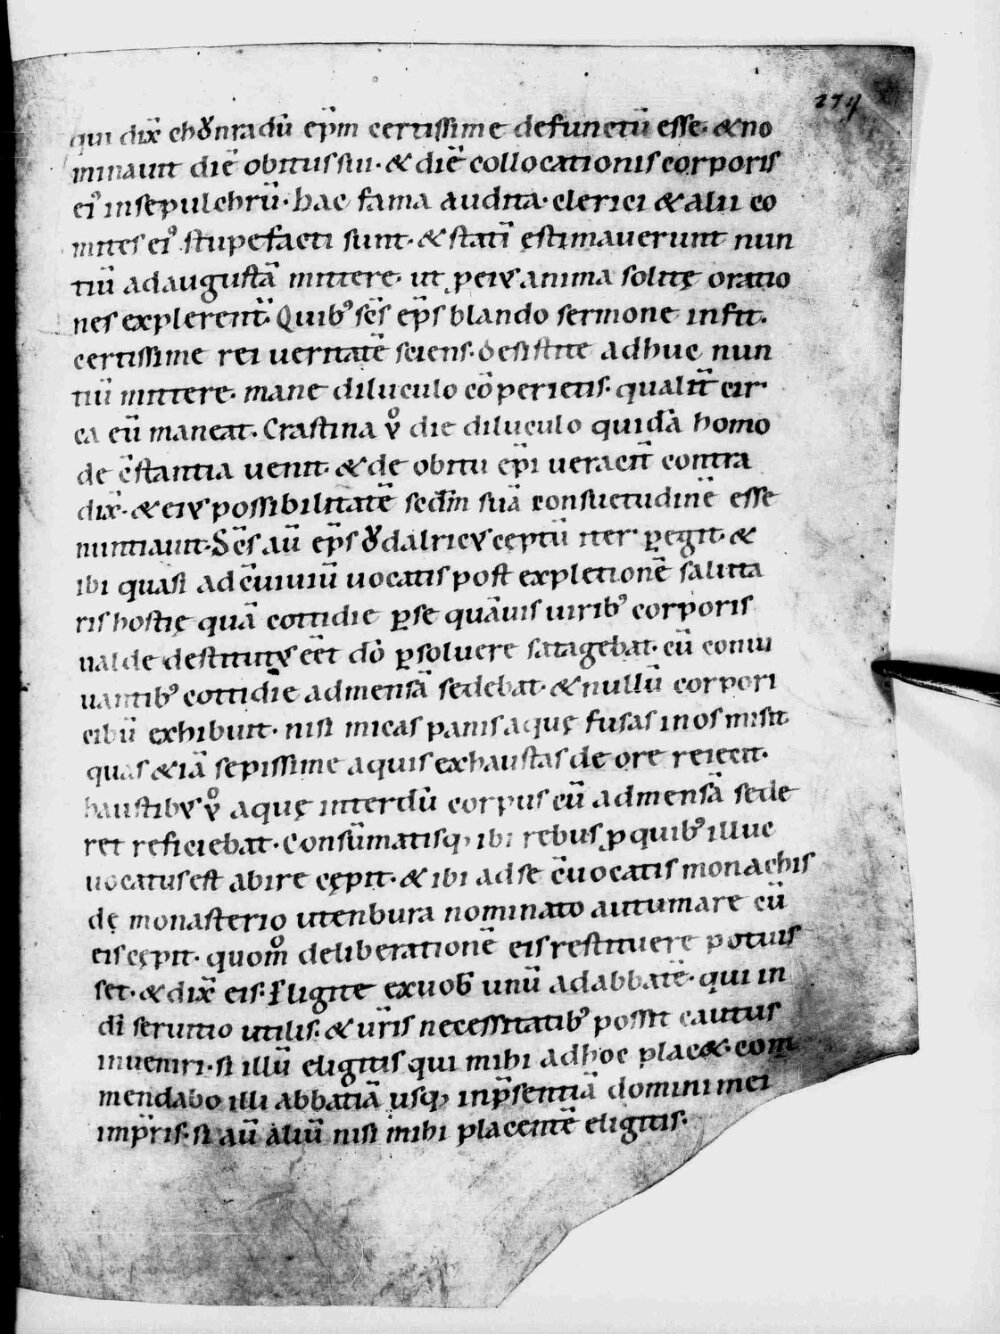 274
qui dix̄ chǒnradū ep̄m certissime defunctū esse· & no
minauit diē obitus sui· & diē collocationis corporis
ei᾽ in sepulchrū· hac fama audita· clerici & alii co
mites ei᾽ stupefacti sunt· & statī ęstimauerunt nun
tiū ad augustā mittere· ut p̱ eius anima solitę oratio
nes explerent̄. Quib᾽ sc̄s ep̄s blando sermone infit.
certissime rei ueritatē sciens· desistite adhuc nun
tiū mittere· mane diluculo cōperietis· qualit̄ cir
ca eū maneat. Crastina v̊ die diluculo quidā homo
de c̄stantia uenit· & de obitu ep̄i ueracit̄ contra
dix̄· & eius possibilitatē secd̄m suā consuetudinē esse
nuntiauit· Sc̄s aū ep̄s ǒdalricus ceptū iter ꝑegit· &
ibi quasi ad c̄uiuiū uocatis post expletionē saluta
ris hostię quā cottidie ꝑ se quāuis uirib᾽ corporis
ualde destitutus eēt dō ꝑsoluere satagebat· cū conui
uantib᾽ cottidie ad mensā sedebat· & nullū corpori
cibū exhibuit· nisi micas panis aquę fusas in os misit
quas & iā sepissime aquis exhaustas de ore reiecit·
haustibus v̊ aquę interdū corpus cū ad mensā sede
ret reficiebat· Consūmatisq; ibi rebus ꝓ quib᾽ illuc
uocatus est abire cępit· & ibi ad se c̄uocatis monachis
de monasterio utenbura nominato autumare cū
eis cępit· quom̊ deliberationē eis restituere potuis
set· & dix̄ eis· Eligite ex uob̄ unū ad abbatē· qui in
dī seruitio utilis· & ur̄is necessitatib᾽ possit cautus
inueniri· si illū eligitis qui mihi ad hoc plac&· com
mendabo illi abbatiā usq; in p̄sentiā domini mei
imp̄ris· si aū aliū nisi mihi placentē eligitis·